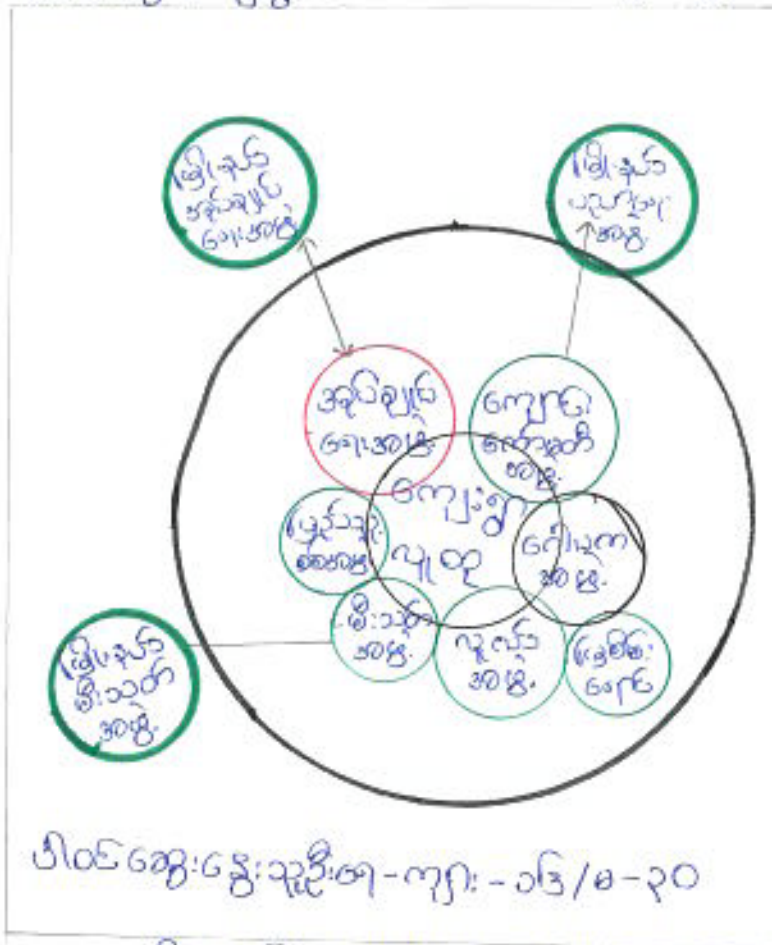 မြို့နယ်
အုပ်ချုပ်
ရေးအဖွဲ့
မြို့နယ်
ပညာရေး
အဖွဲ့
အုပ်ချုပ်
ရေးအဖွဲ့
ကျောင်း
ကော်မတီ
အဖွဲ့
ကျေးရွာ
လူထု
ပြည်သူ့
စစ်အဖွဲ့
ဂေါပက
အဖွဲ့
မီးသတ်
အဖွဲ့
လူငယ်
အဖွဲ့
မြို့နယ်
မီးသတ်
အဖွဲ့
ပါဝင်ဆွေးနွေးသူဦးရေ-ကျား-၁၆/မ-၃၀